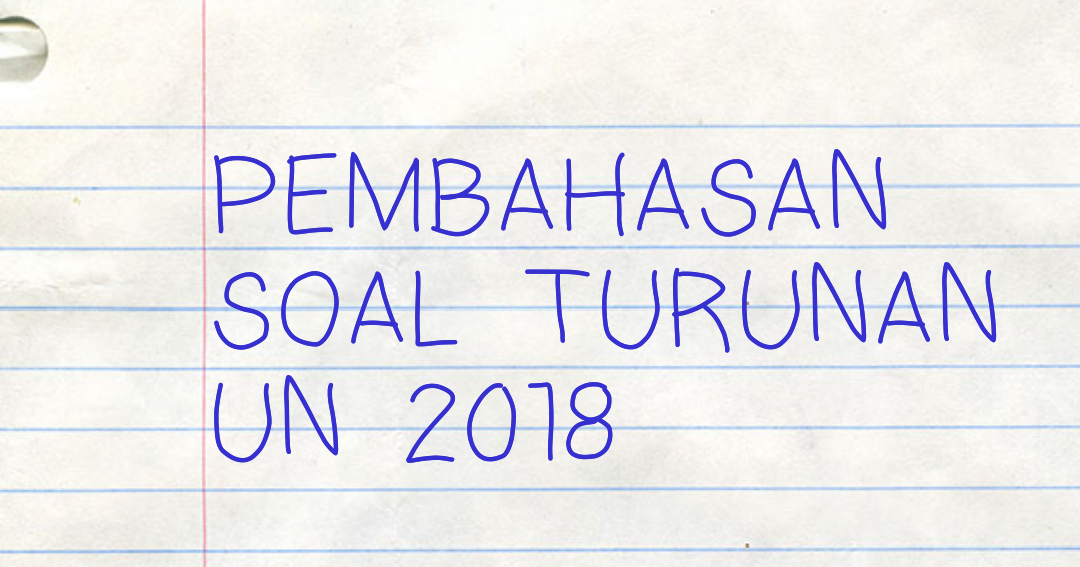 PEMBAHASAN
SOAL TURUNAN
UN 2018